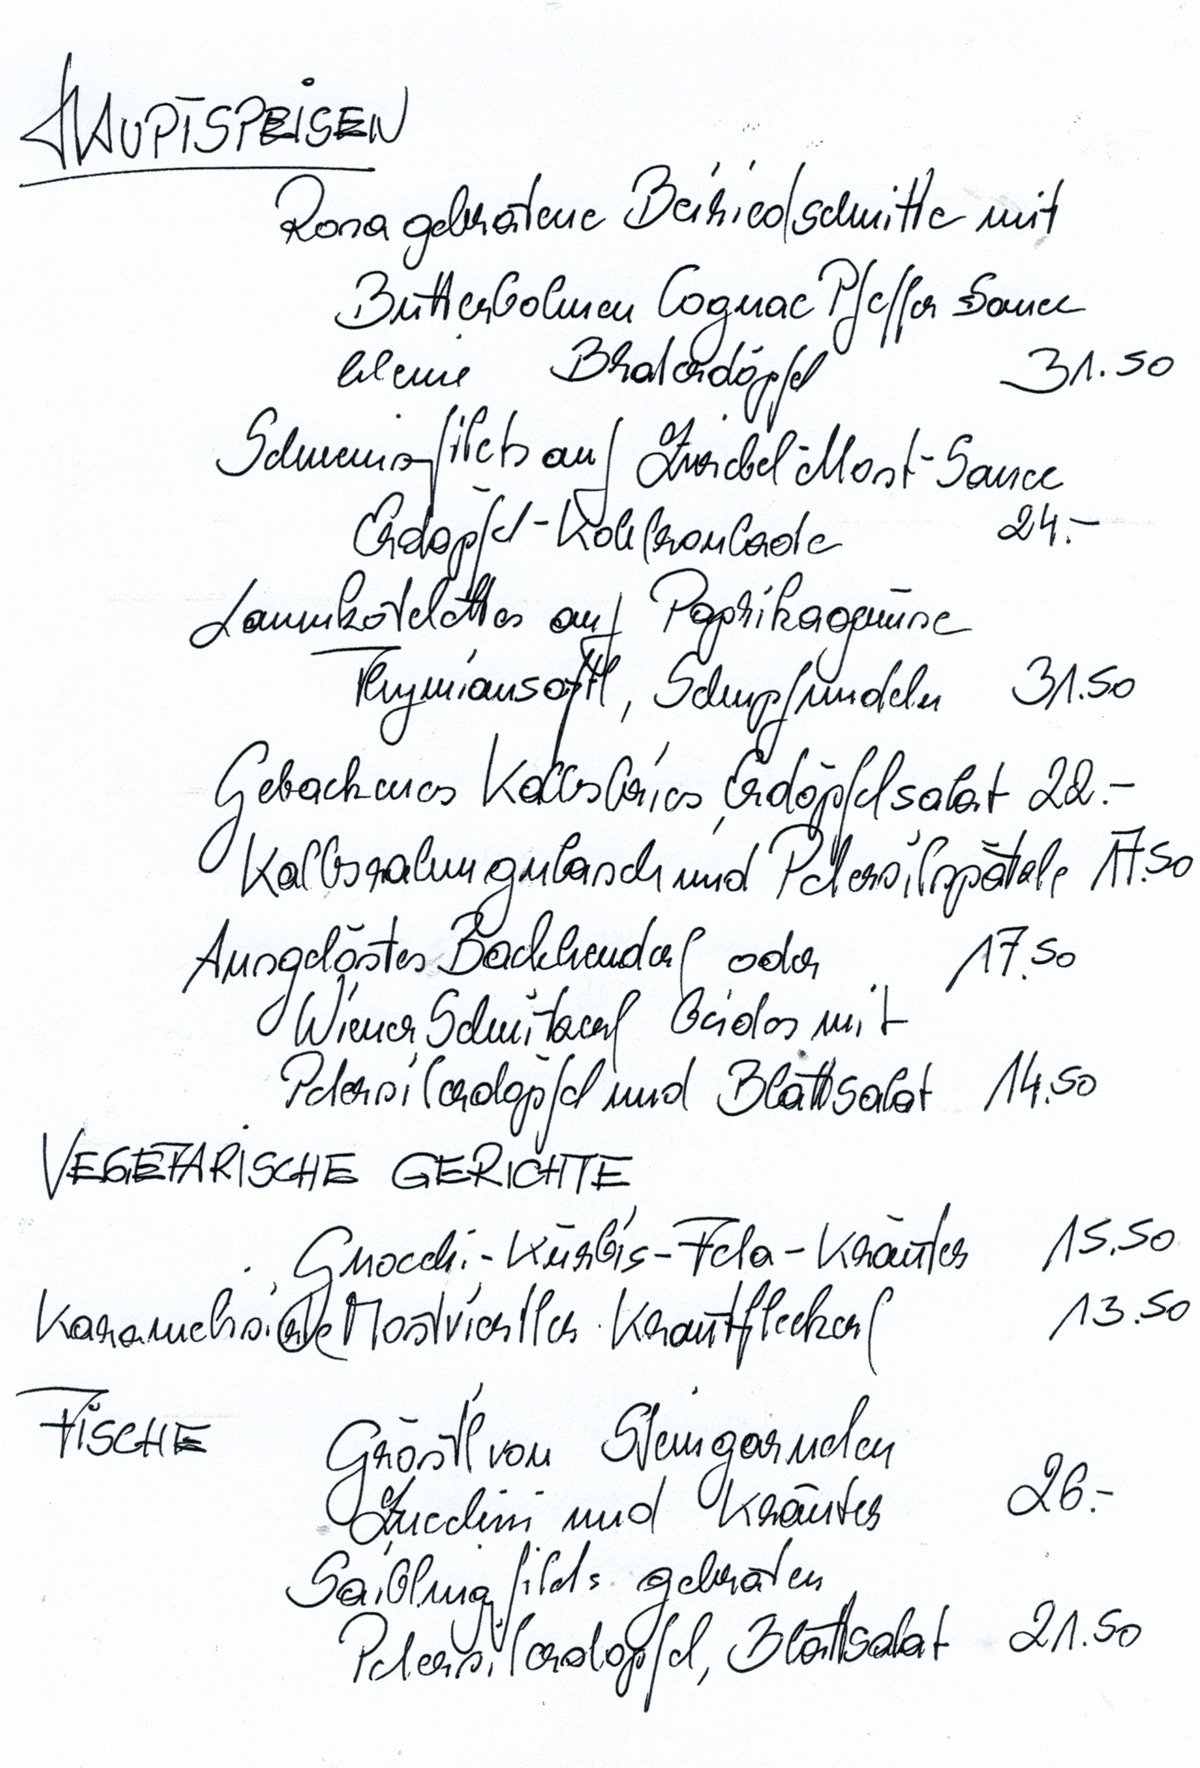 HAUPTSPEISEN
Rosa gebratene Beiriedschnitte mit
Butterbohnen Cognac Pfeffer Sauce
kleine Braterdöpfel 31.50
Schweinsfilets auf Zwiebel-Most-Sauce
Erdöpfel-Kohlroulade 24.-
Lammkoteletttes auf Paprikagemüse
Thymiansaftl, Schupfnudeln 31.50
Gebackenes Kalbsbries, Erdöpfelsalat 22.-
Kalbsrahmgulasch und Petersilspätzle 17.50
Ausgelöstes Backhenderl oder 17.50
Wiener Schnitzerl beides mit
Petersilerdöpfel und Blattsalat 14.50
VEGETARISCHE GERICHTE
Gnocchi-Kürbis-Feta-Kräuter 15.50
Karamelisierte Mostviertler Krautfleckerl 13.50
FISCHE Gröstl von Steingarnelen
Zucchini und Kräuter 26.-
Saiblingfilets gebraten
Petersilerdöpfel, Blattsalat 21.50